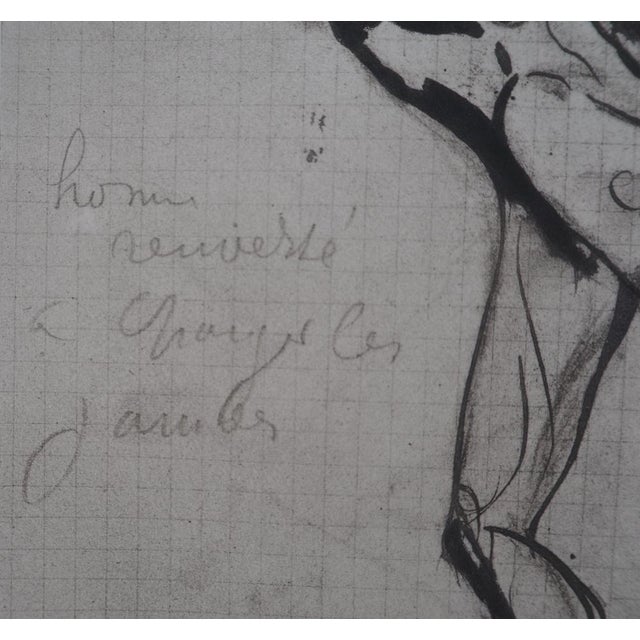 homme
renversé
à changer les
jambes